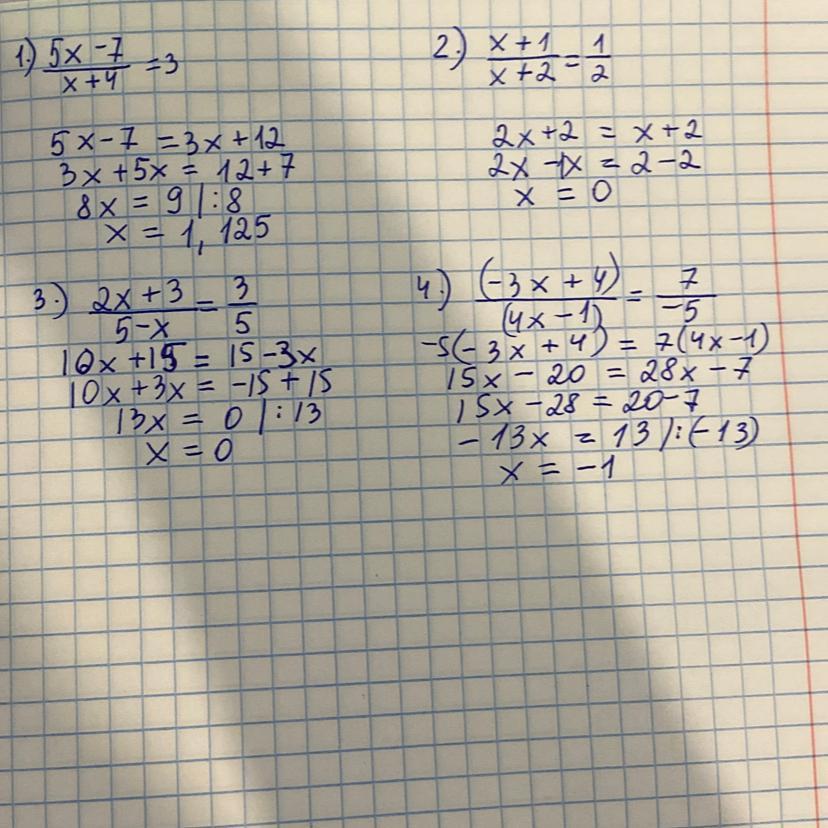 1.) (5x-7)/(x+4) = 3
5x-7 = 3x+12
3x+5x = 12+7
8x = 9 |:8
x = 1,125
2.) (x+1)/(x+2) = 1/2
2x+2 = x+2
2x-1x = 2-2
x = 0
3.) (2x+3)/(5-x) = 3/5
10x+15 = 15-3x
10x+3x = -15+15
13x = 0 |:13
x = 0
4.) (-3x+4)/(4x-1) = 7/-5
-5(-3x+4) = 7(4x-1)
15x-20 = 28x-7
15x-28 = 20-7
-13x = 13 |:(-13)
x = -1